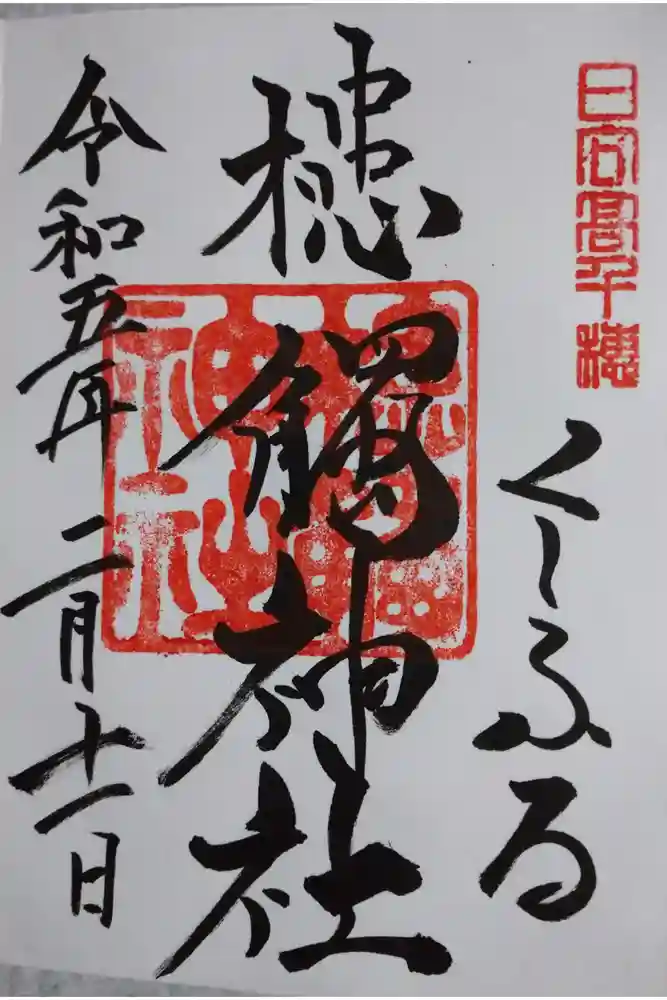 日向高千穂
くしふる
槵觸神社
槵觸
神社
令和五年二月十一日